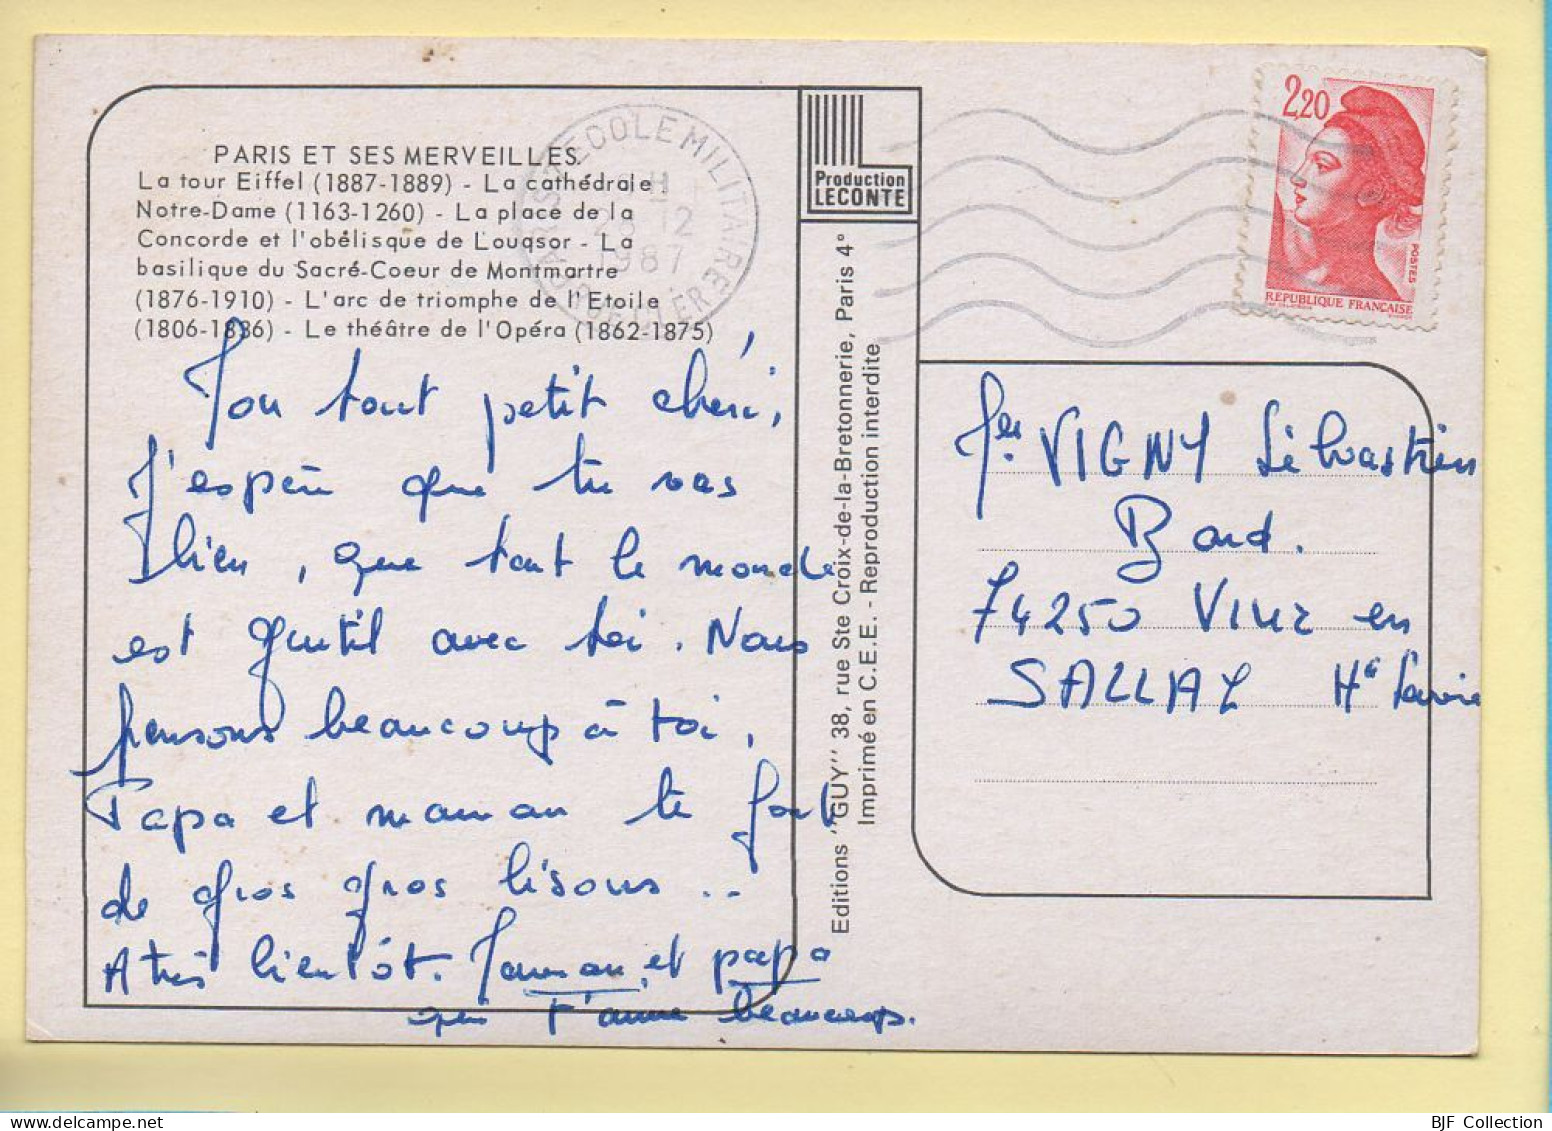 PARIS ET SES MERVEILLES
La tour Eiffel (1887-1889) - La cathédrale
Notre-Dame (1163-1260) - La place de la
Concorde et l'obélisque de Louqsor - La
basilique du Sacré-Coeur de Montmartre
(1876-1910) - L'arc de triomphe de l'Etoile
(1806-1836) - Le théâtre de l'Opéra (1862-1875)
ECOLE MILITAIRE
12
1987
Mon tout petit chéri,
J'espère que tu vas
bien, que tout le monde
est gentil avec toi. Nous
pensons beaucoup à toi.
Papa et maman te font
de gros gros bisous ..
A très bientôt. Maman et papa
qui t'aime beaucoup.
Production
LECONTE
Editions "GUY" 38, rue Ste Croix-de-la-Bretonnerie, Paris 4°
Imprimé en C.E.E. - Reproduction interdite
2,20
POSTES
REPUBLIQUE FRANÇAISE
VIGNY Sébastien
74250 VIUZ en
SALLAZ Hte Savoie
BJF Collection